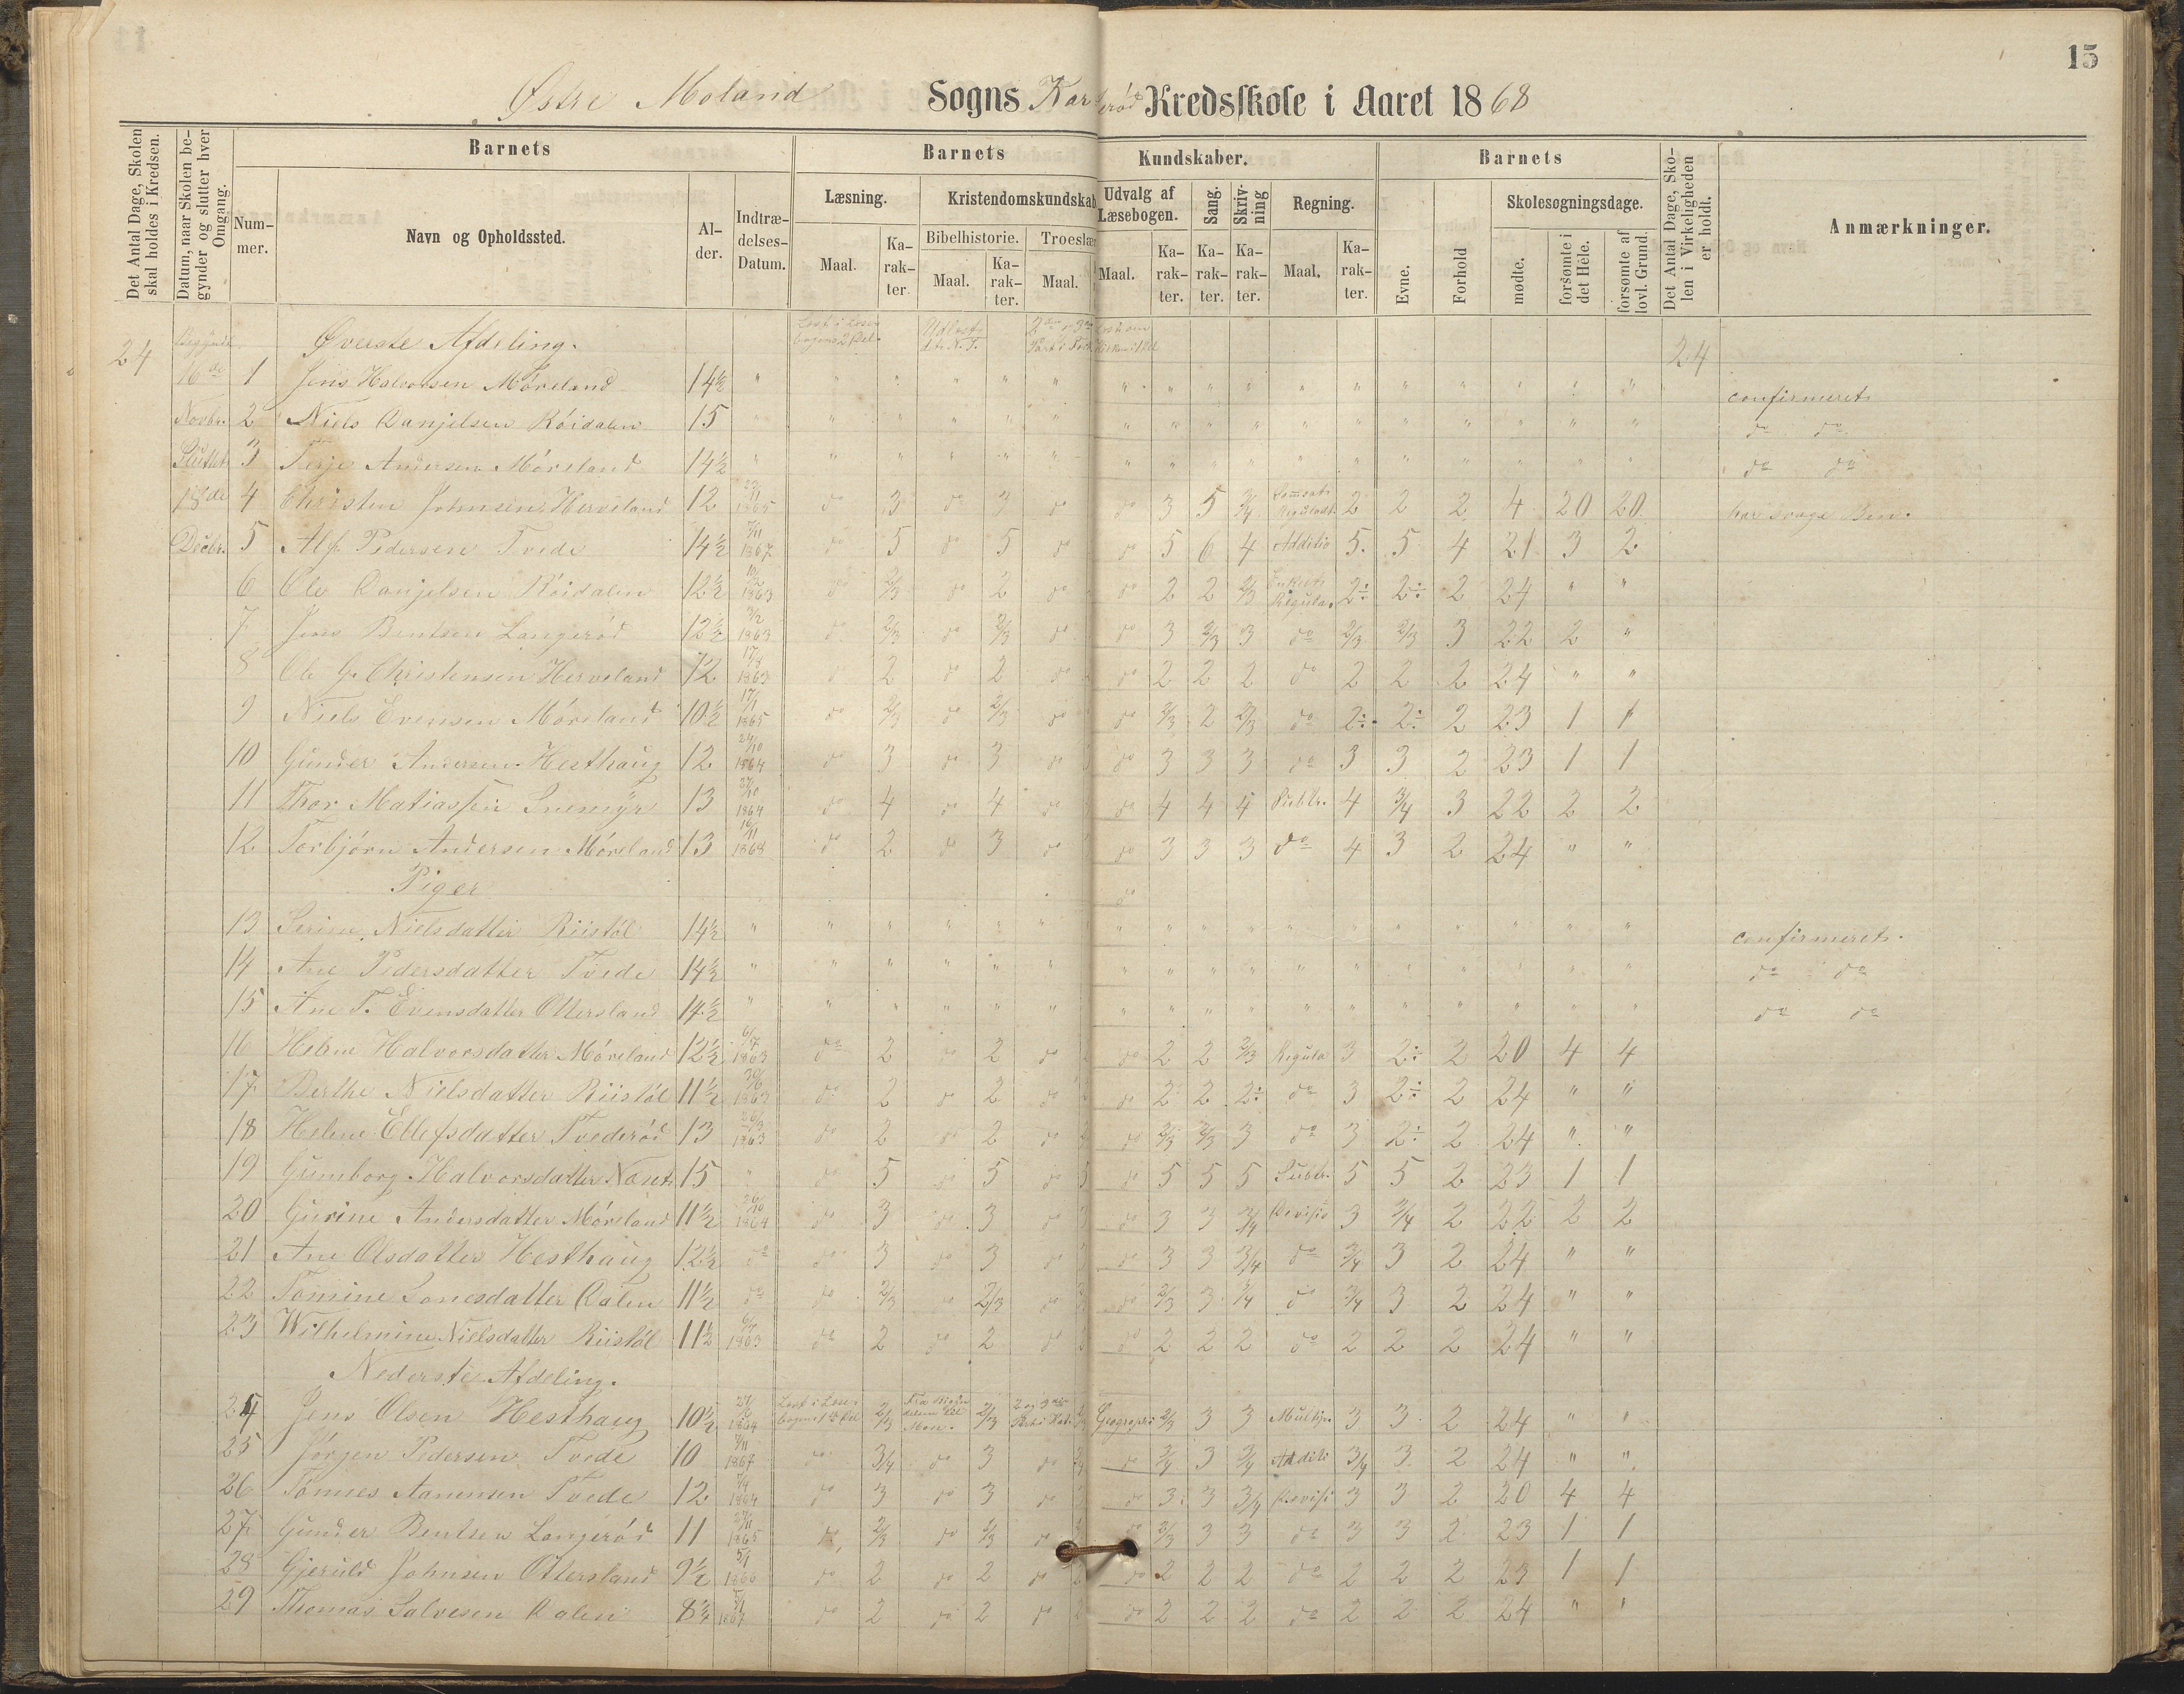 15
Østre Moland Sogns Kredsskole i Aaret 1868
Det Antal Dage, Skolen skal holdes i Kredsen.
Datum, naar Skolen begynder og slutter hver Omgang.
Barnets
Nummer.
Navn og Opholdssted.
Alder.
Indtrædelses-Datum.
Barnets Kundskaber.
Læsning.
Maal.
Karakter.
Kristendomskundskab
Bibelhistorie.
Maal.
Karakter.
Troeslær
Maal.
Udvalg af Læsebogen.
Maal.
Karakter.
Sang.
Karakter.
Skrivning
Karakter.
Regning.
Maal.
Karakter.
Barnets
Evne.
Forhold
Skolesøgningsdage.
mødte.
forsømte i det Hele.
forsømte af lovl. Grund.
Det Antal Dage, Skolen i Virkeligheden er holdt.
Anmærkninger.
24 Øverste Afdeling. 24
16de 1 Jens Halvorsen Møreland 14½ " confirmeret
Novbr. 2 Niels Danjelsen Röidalen 15 " do do
Sluttet 3 Terje Andersen Møreland 14½ " do do
18de 4 Christen Johnsen Herveland 12 1865 do 3 do 3 do do 3 5 3/4 2 2 2 4 20 20 har svage Ben.
Decbr. 5 Alf Pedersen Tvede 14½ 7/11 1867 do 5 do 5 do do 5 6 4 Additio 5. 5 4 21 3 2
6 Ole Danjelsen Röidalen 12½ 1863 do 2/3 do 2 do do 2 2 2/3 Regula. 2÷ 2÷ 2 24 " "
7 Jens Bentsen Langerød 12½ 1863 do 2/3 do 2/3 do do 3 2/3 3 do 2/3 2/3 3 22 2 "
8 Ole G. Christensen Herveland 12 1863 do 2 do 2 do do 2 2 2 do 2 2 2 24 " "
9 Niels Evensen Møreland 10½ 1865 do 2/3 do 2/3 do do 2/3 2 2/3 do 2÷ 2÷ 2 23 1 1
10 Gunder Andersen Hesthaug 12 24/10 1864 do 3 do 3 do do 3 3 3 do 3 3 2 23 1 1
11 Thor Matiassen Snemyr 13 1864 do 4 do 4 do do 4 4 4 Subtr. 4 3/4 3 22 2 2
12 Torbjørn Andersen Møreland 13 16/11 1868 do 2 do 3 do do 3 3 3 do 4 3 2 24 " "
Piger do
13 Serine Nielsdatter Riistöl 14½ " confirmeret.
14 Ane Pedersdatter Tvede 14½ " do do
15 Ane T. Evensdatter Ottersland 14½ " do do
16 Helene Halvorsdatter Møreland 12½ 1863 do 2 do 2 do do 2 2 2/3 Regula 3 2÷ 2 20 4 4
17 Berthe Nielsdatter Riistöl 11½ 1863 do 2 do 2 do do 2 2 2÷ do 3 2÷ 2 24 " "
18 Helene Ellefsdatter Tvederød 13 1863 do 2 do 2 do do 2/3 2/3 3 do 3 2÷ 2 24 " "
19 Gumborg Halvorsdatter 15 " do 5 do 5 do 5 do 5 5 5 Subtr. 5 5 2 23 1 1
20 Gurine Andersdatter Møreland 11½ 26/10 1864 do 3 do 3 do do 3 3 3/4 Divisio 3 3/4 2 22 2 2
21 Ane Olsdatter Hesthaug 12½ do do 3 do 3 do do 3 3 3/4 do 3/4 3 2 24 " "
22 Tomine Lonesdatter Dalen 11½ do do 2/3 do 2/3 do do 2/3 3 3/4 do 3/4 3 2 24 " "
23 Wilhelmine Nielsdatter Riistöl 11½ 1863 do 2 do 2 do do 2 2 2 do 2 2 2 24 " "
Nederste Afdeling.
24 Jens Olsen Hesthaug 10½ 1864 2/3 2/3 Geographi 2/3 3 3 Multipl. 3 3 2 24 " "
25 Jörgen Pedersen Tvede 10 7/11 1867 do 3/4 do 3 do do 3/4 3 3/4 Additi 3/4 3 2 24 " "
26 Tönnes Aanensen Tvede 12 1864 do 3 do 3 do do 3 3 3/4 Divisi 3 3 2 20 4 4
27 Gunder Bentsen Langerød 11 1865 do 2/3 do 2/3 do do 2/3 3 3 do 3 3 2 23 1 1
28 Gjeruld Johnsen Ottersland 9½ 5/1 1866 do 2 do 2 do do 2 2 2 do 2 2 2 23 1 1
29 Thomas Salvesen Dalen 8½ do 2 do 2 do 2 do 2 2 2 do 2 2 2 24 " "